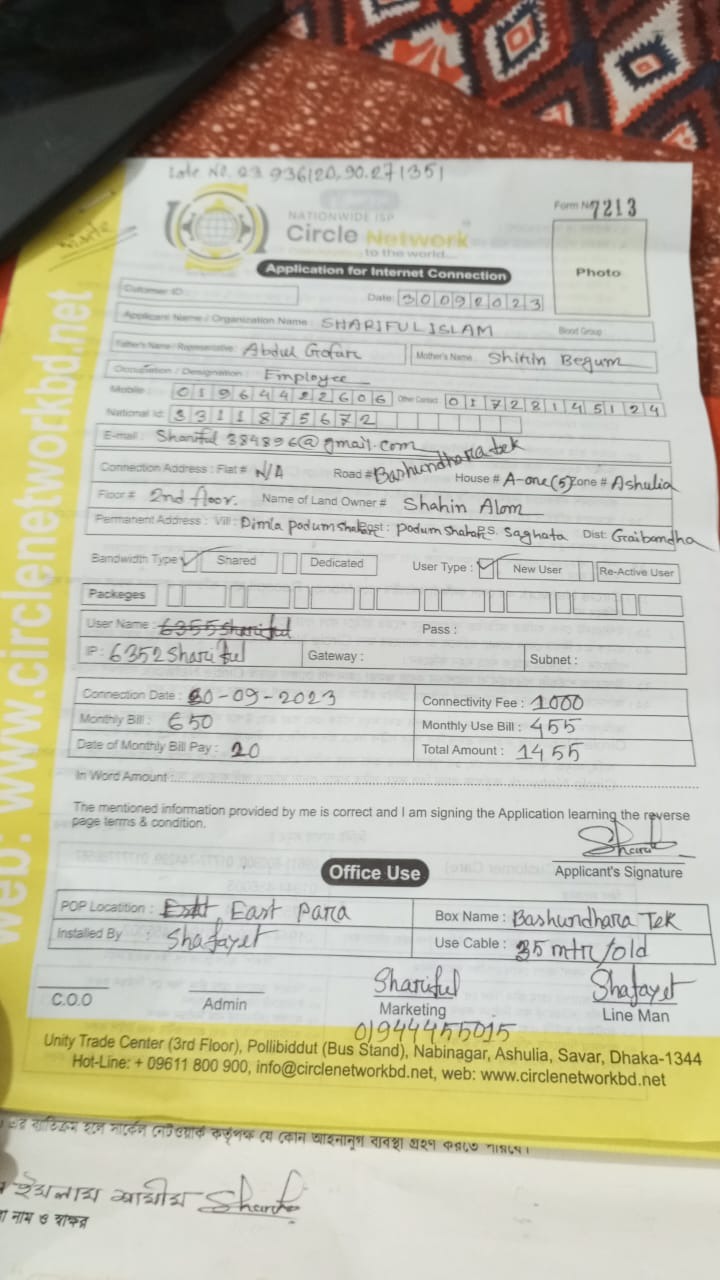 Late No. 23.936120,90.271351
Form No 7213
NATIONWIDE ISP
Circle Network
to the world...
Photo
Application for Internet Connection
Customer ID :
Date: 30092023
Applicant Name / Organization Name : SHARIFUL ISLAM Blood Group
Father's Name / Representative : Abdul Gofar Mother's Name : Shirin Begum
Occupation / Designation : Employee
Mobile : 01964422606 Other Contact: 01728145124
National Id: 3311875672
E-mail : Shariful384896@gmail.com
Connection Address : Flat # N/A Road # Bashundhara tek House # A-one (5) Zone # Ashulia
Floor # 2nd floor. Name of Land Owner # Shahin Alom
Permanent Address : Vill : Dimla padumshahar Post : padumshahar P.S. Saghata Dist: Gaibandha
Bandwidth Type Shared Dedicated User Type : New User Re-Active User
Packeges
User Name : 6355shariful Pass :
IP : 6352Shariful Gateway : Subnet :
Connection Date : 30-09-2023 Connectivity Fee : 1000
Monthly Bill : 650 Monthly Use Bill : 455
Date of Monthly Bill Pay : 20 Total Amount : 1455
In Word Amount :
The mentioned information provided by me is correct and I am signing the Application learning the reverse
page terms & condition.
Applicant's Signature
Office Use
POP Locatition : East Para Box Name : Bashundhara Tek
Installed By : Shafayet Use Cable : 35 mtr/old
Shariful Shafayet
C.O.O Admin Marketing Line Man
01944455015
Unity Trade Center (3rd Floor), Pollibiddut (Bus Stand), Nabinagar, Ashulia, Savar, Dhaka-1344
Hot-Line: + 09611 800 900, info@circlenetworkbd.net, web: www.circlenetworkbd.net
web: www.circlenetworkbd.net
এর ব্যতিক্রম হলে সার্কেল নেটওয়ার্ক কর্তৃপক্ষ যে কোন আইনানুগ ব্যবস্থা গ্রহণ করতে পারবে।
ইসলাম শামীম
নাম ও স্বাক্ষর